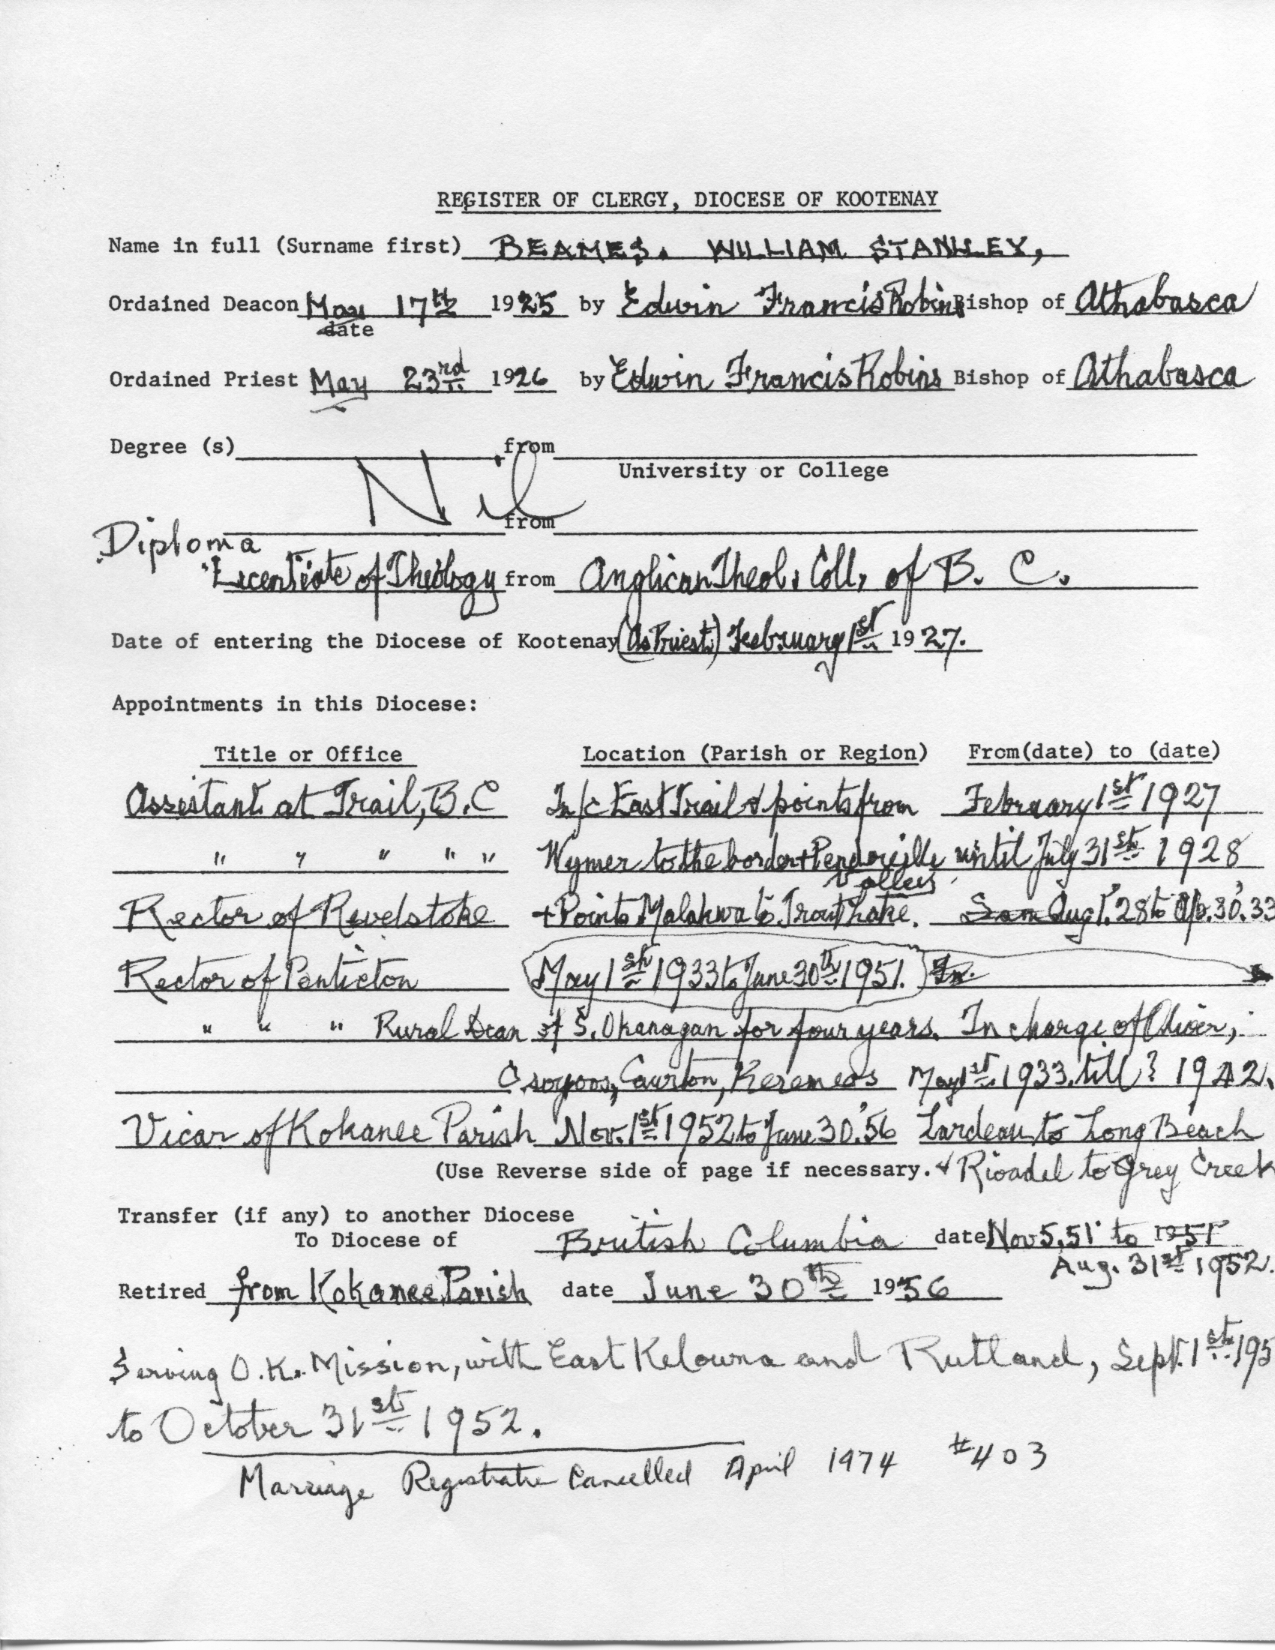 REGISTER OF CLERGY, DIOCESE OF KOOTENAY
Name in full (Surname first) BEAMES. WILLIAM STANLEY,
Ordained Deacon May 17th 1925 by Edwin Francis Robins Bishop of Athabasca
date
Ordained Priest May 23rd 1926 by Edwin Francis Robins Bishop of Athabasca
Degree (s) from
University or College
Nil
from
Diploma
"Licentiate of Theology from Anglican Theol. Coll, of B. C.
Date of entering the Diocese of Kootenay (As Priest) February 1st 1927.
Appointments in this Diocese:
Title or Office Location (Parish or Region) From(date) to (date)
Assistant at Trail, B.C In/c East Trail & points from February 1st 1927
" " " " " Wymer to the border + Pendoreille until July 31st 1928
Valleys
Rector of Revelstoke + Points Malakwa to Trout Lake. Aug 1. 28 to Ap. 30. 33
Rector of Penticton May 1st 1933 to June 30th 1951. In.
" " " Rural Dean of S. Okanagan for four years. In charge of Oliver,
Osoyoos, Cawston, Keremeos May 1st 1933. till ? 1942.
Vicar of Kokanee Parish Nov. 1st 1952 to June 30. 56 Lardeau to Long Beach
(Use Reverse side of page if necessary. & Riondel to Grey Creek
Transfer (if any) to another Diocese
To Diocese of British Columbia date Nov 5, 51 to 1951
Aug. 31st 1952.
Retired from Kokanee Parish date June 30th 1956
Serving O.K. Mission, with East Kelowna and Rutland, Sept. 1st 195
to October 31st 1952.
Marriage Registratn Cancelled April 1974 #403